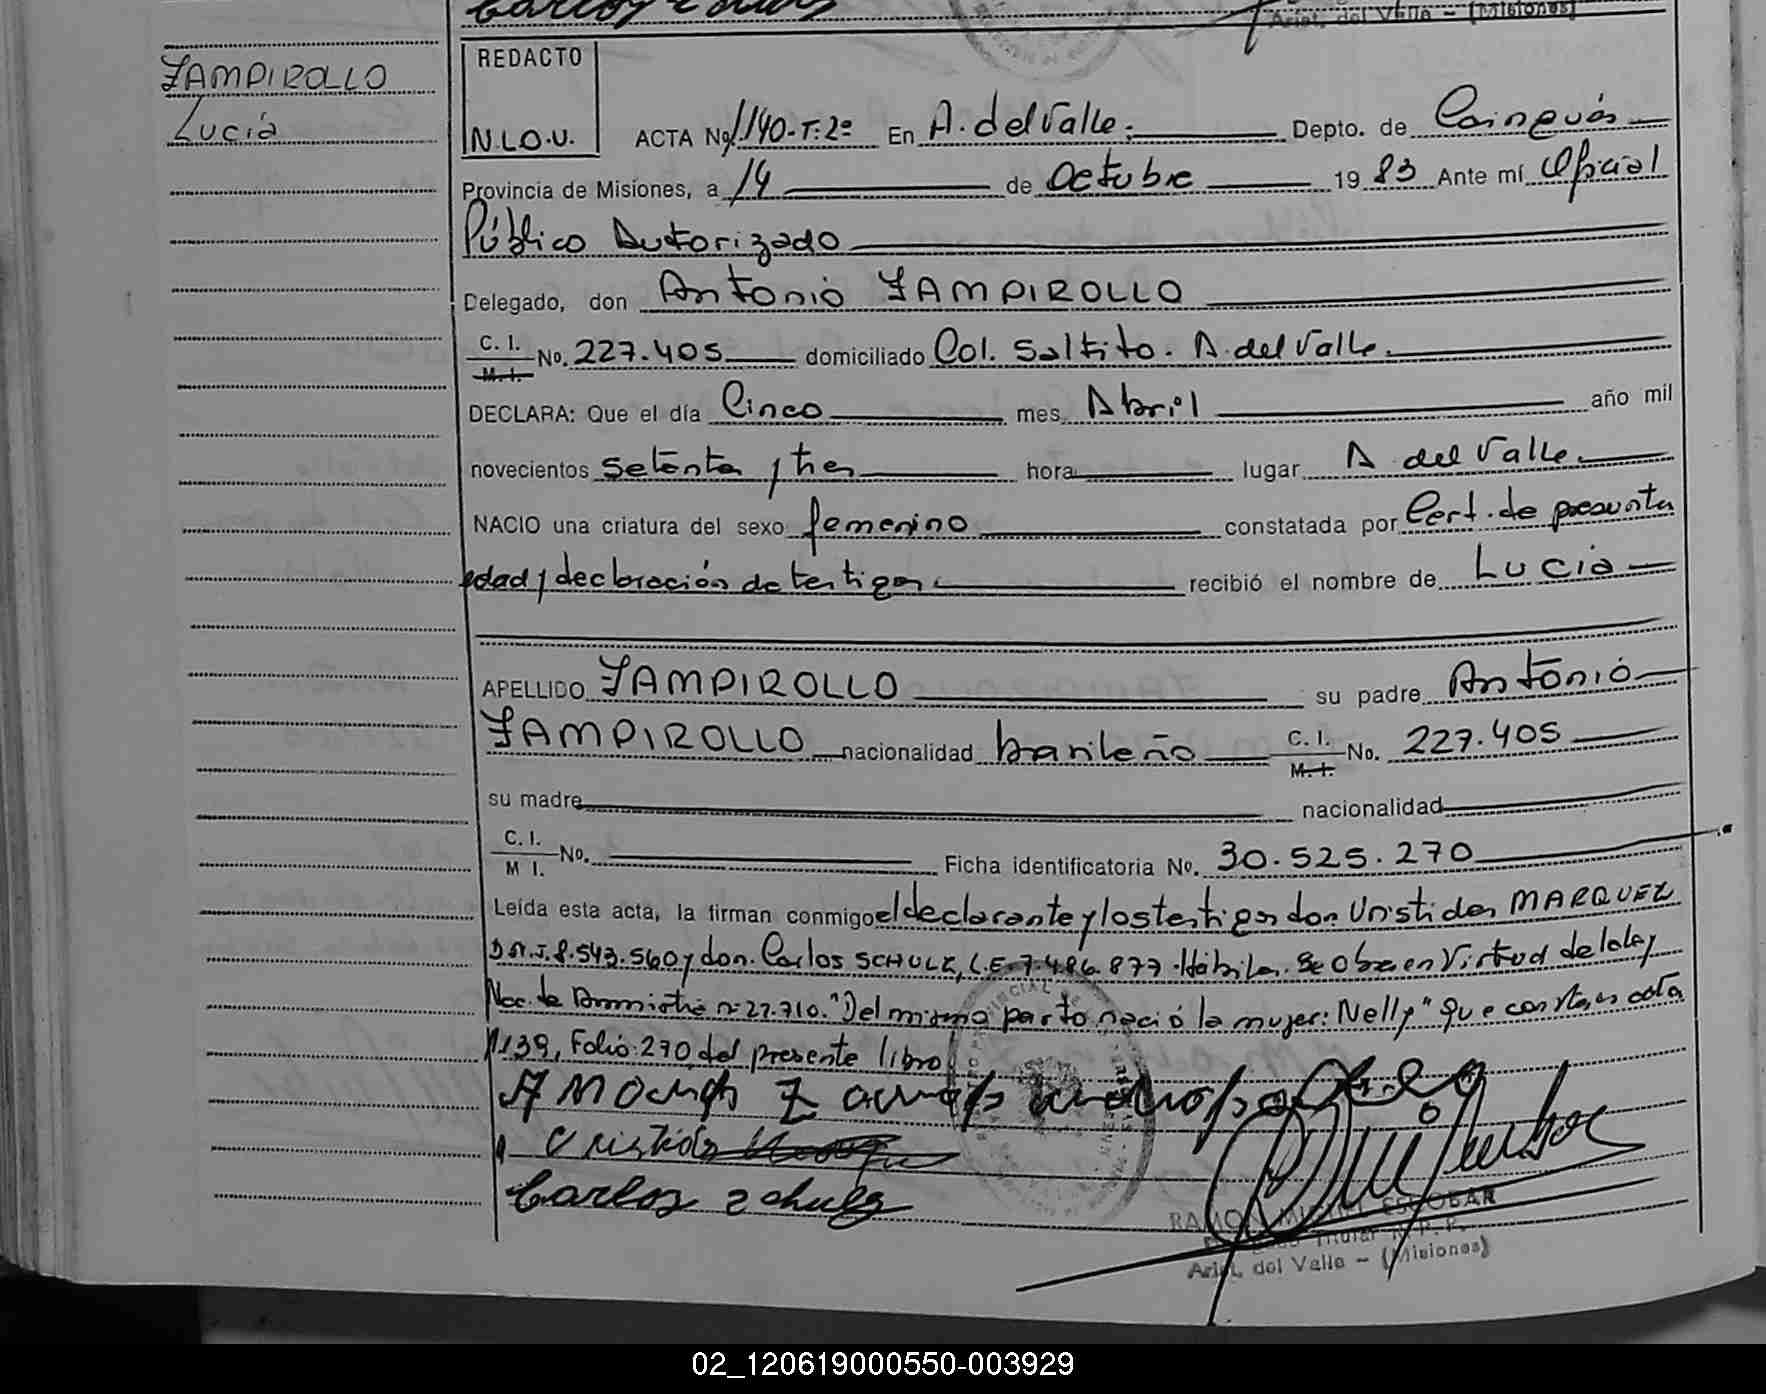 Arist. del Valle - (Misiones)
ZAMPIROLLO
Lucia
REDACTO
N.L.O.U.
ACTA No 1140-T:2º En A. del Valle. Depto. de Cainguás
Provincia de Misiones, a 14 de Octubre 19 83 Ante mí Oficial
Público Autorizado
Delegado, don Antonio ZAMPIROLLO
C. I.
M. I. No. 227.405 domiciliado Col. Saltito. A. del Valle.
DECLARA: Que el día Cinco mes Abril año mil
novecientos setenta y tres hora lugar A del Valle.
NACIO una criatura del sexo femenino constatada por Cert. de presunta
edad y declaración de testigos. recibió el nombre de Lucia
APELLIDO ZAMPIROLLO su padre Antonio
ZAMPIROLLO nacionalidad brasileño C. I.
M. I. No. 227.405
su madre nacionalidad
C. I.
M I. No. Ficha identificatoria No. 30.525.270
Leída esta acta, la firman conmigo el declarante y los testigos don Cristides MARQUEZ
D.N.I. 8.543.560 y don. Carlos SCHULZ, L.E. 7.486.877. Hábiles. Se Obra en Virtud de la ley
Nac. de Amnistia nº 22.710. "Del mismo parto nació la mujer: Nelly" que consta en acta
1139, Folio 270 del presente libro
Carlos zchulz
RAMON MIGUEL ESCOBAR
Titular R. P. P.
Arist. del Valle - (Misiones)
02_120619000550-003929